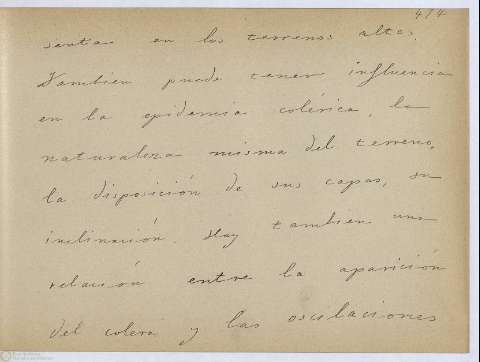 474
senta en los terrenos altos.
Tambien puede tener influencia
en la epidemia colérica, la
naturaleza misma del terreno,
la disposición de sus capas, su
inclinación. Hay tambien una
relación entre la aparición
del colera y las oscilaciones